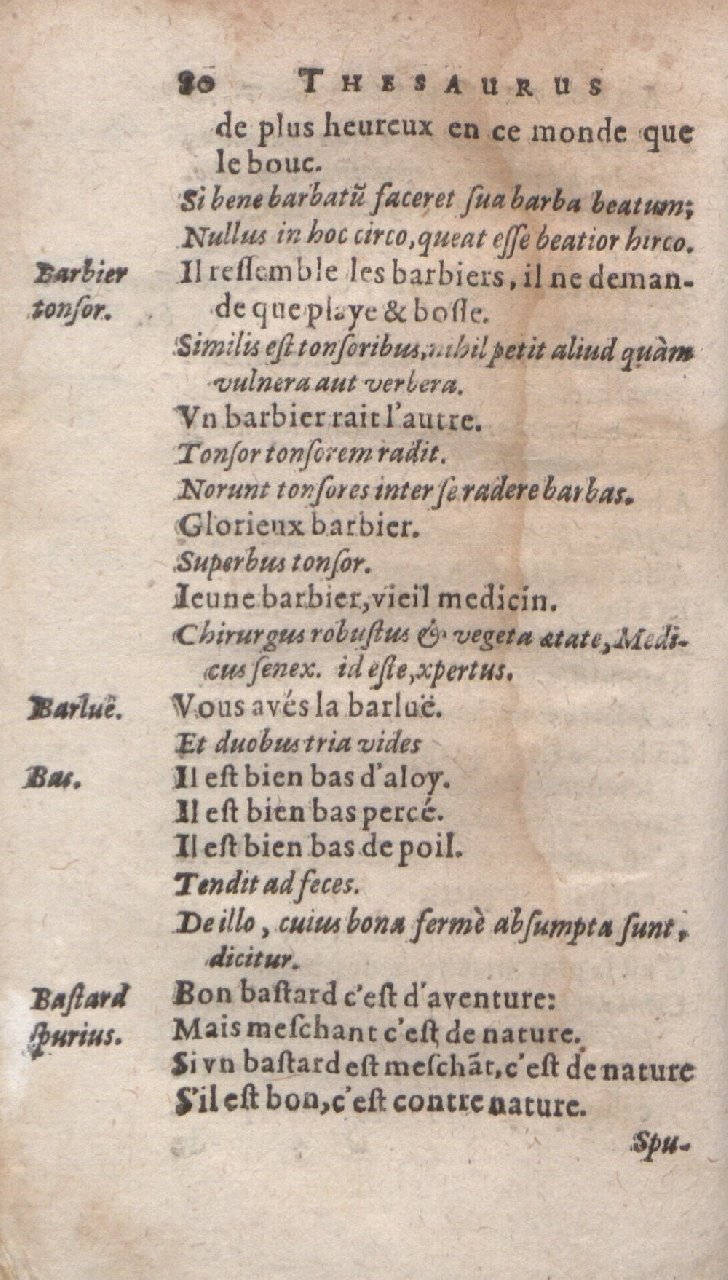 80 THESAURUS
de plus heureux en ce monde que
le bouc.
Si bene barbatũ faceret ſua barba beatum;
Nullus in hoc circo, queat eſſe beatior hirco.
Barbier
tonſor.
Il reſſemble les barbiers, il ne deman-
de que playe & boſſe.
Similis eſt tonſoribus, nihil petit aliud quàm
vulnera aut verbera.
Vn barbier rait l'autre.
Tonſor tonſorem radit.
Norunt tonſores inter ſe radere barbas.
Glorieux barbier.
Superbus tonſor.
Ieune barbier, vieil medicin.
Chirurgus robuſtus & vegeta ætate, Medi-
cus ſenex. id eſte, xpertus.
Barluë.
Vous avés la barluë.
Et duobus tria vides
Bas.
Il eſt bien bas d'aloy.
Il eſt bien bas percé.
Il eſt bien bas de poil.
Tendit ad feces.
De illo, cuius bona fermè abſumpta ſunt,
dicitur.
Baſtard
ſpurius.
Bon baſtard c'eſt d'aventure:
Mais meſchant c'eſt de nature.
Si vn baſtard eſt meſchãt, c'eſt de nature
S'il eſt bon, c'eſt contre nature.
Spu-